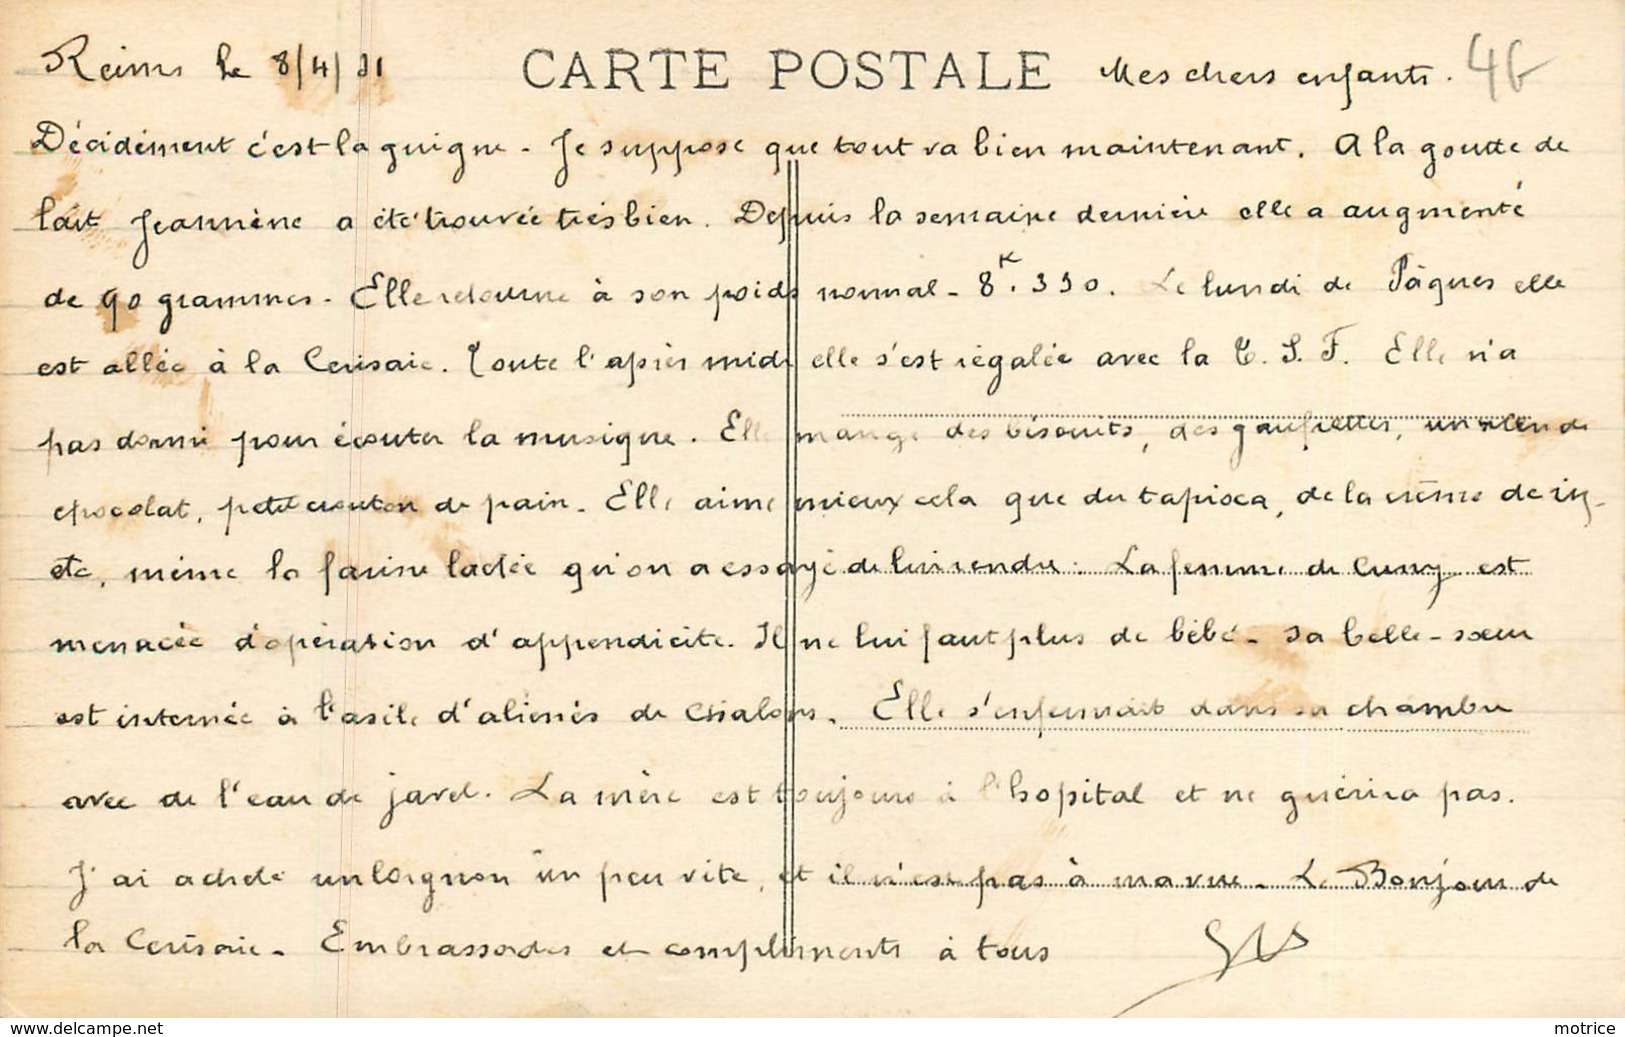 Reims le 8/4/31 CARTE POSTALE Mes chers enfants. 46
Décidément c'est la guigne - Je suppose que tout va bien maintenant. A la goutte de
lait Jeannène a été trouvée très bien. Depuis la semaine dernière elle a augmenté
de 90 grammes - Elle retourne à son poids normal - 8K.390. Le lundi de Pâques elle
est allée à la Cerisaie. Toute l'après midi elle s'est régalée avec la T.S.F. Elle n'a
pas dormi pour écouter la musique. Elle mange des biscuits, des gaufrettes, un
chocolat, petit crouton de pain. Elle aime mieux cela que du tapioca, de la crème de riz -
etc, même la farine lactée qu'on a essayé de lui rendre. La femme de Cuny est
menacée d'opération d'appendicite. Il ne lui faut plus de bébé - Sa belle-sœur
est internée à l'asile d'aliénés de Chalons. Elle s'enfermait dans sa chambre
avec de l'eau de javel. La mère est toujours à l'hopital et ne guérira pas.
J'ai acheté un lorgnon un peu vite, et il n'est pas à ma vue - Le Bonjour de
la Cerisaie - Embrassades et compliments à tous
www.delcampe.net
motrice